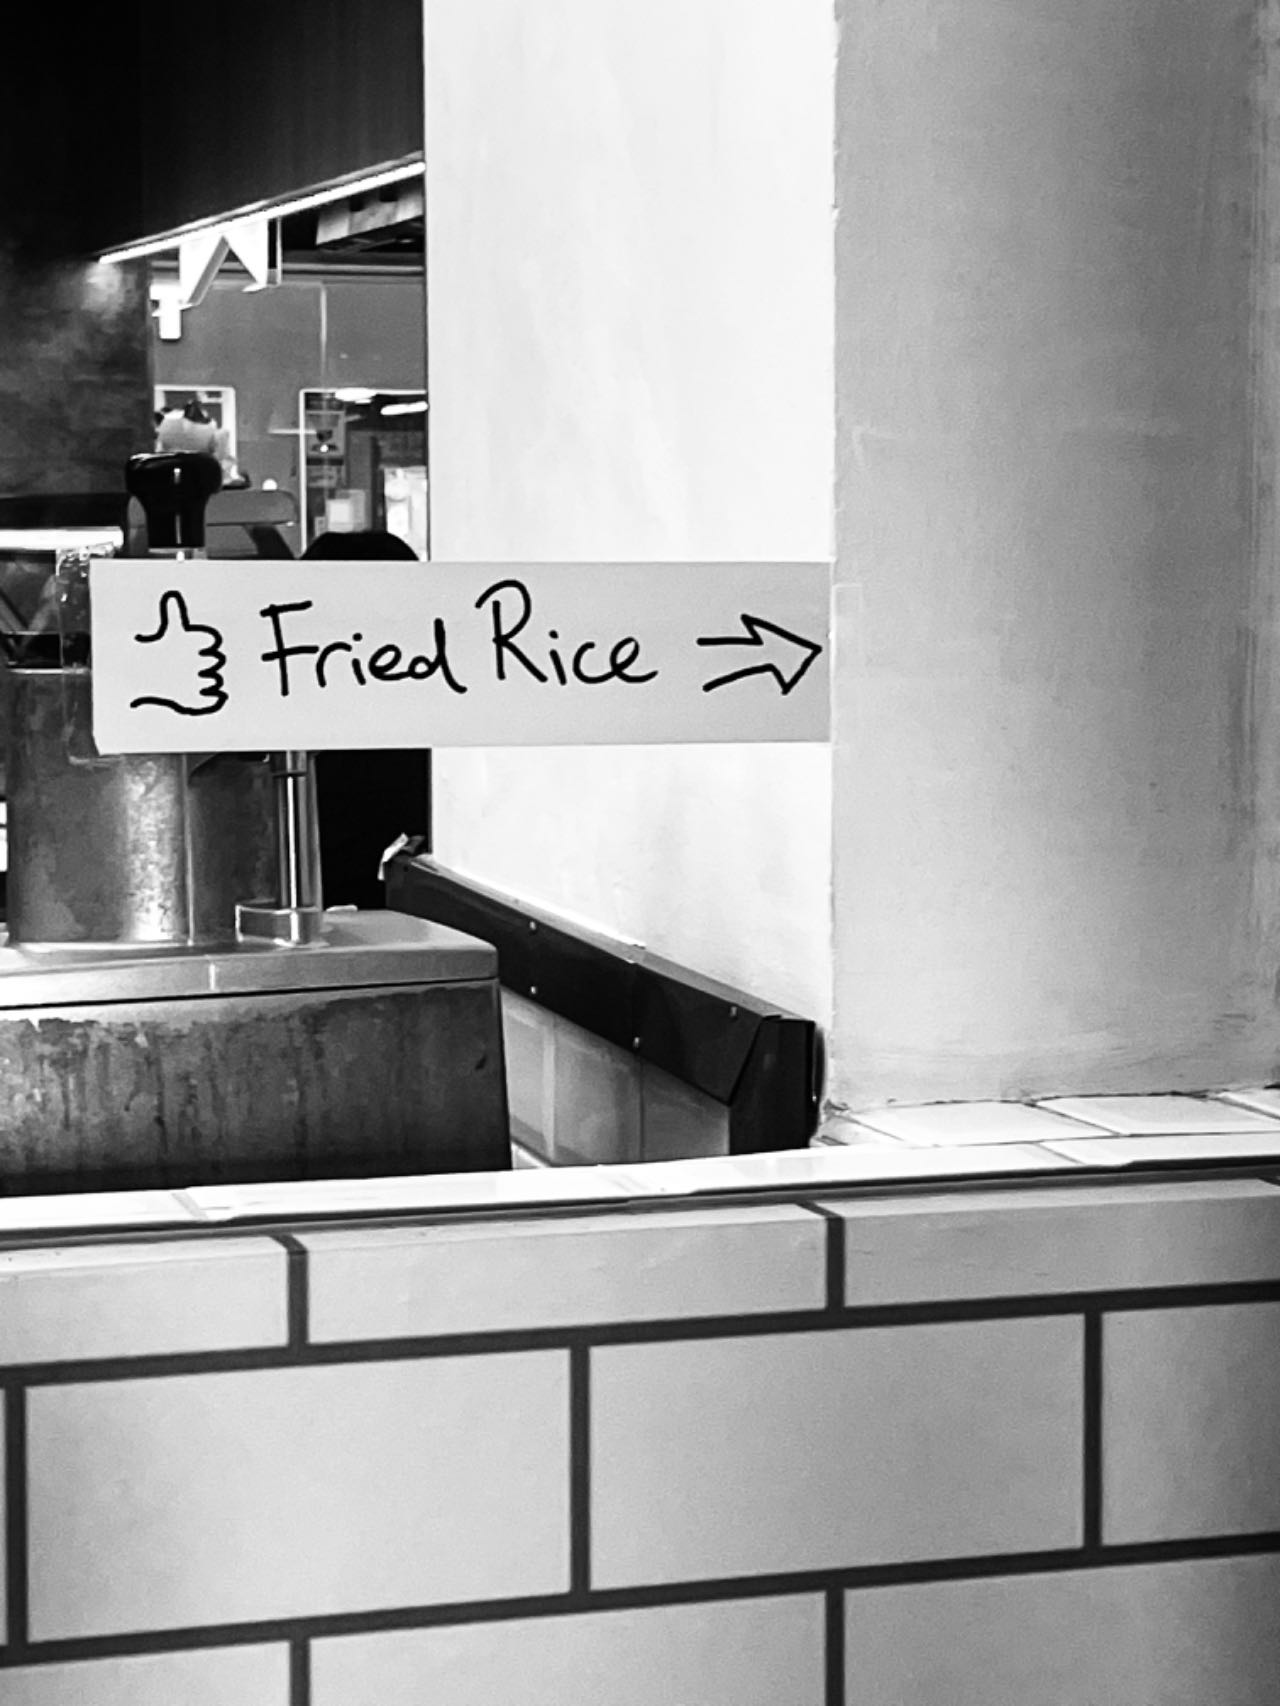 Fried Rice